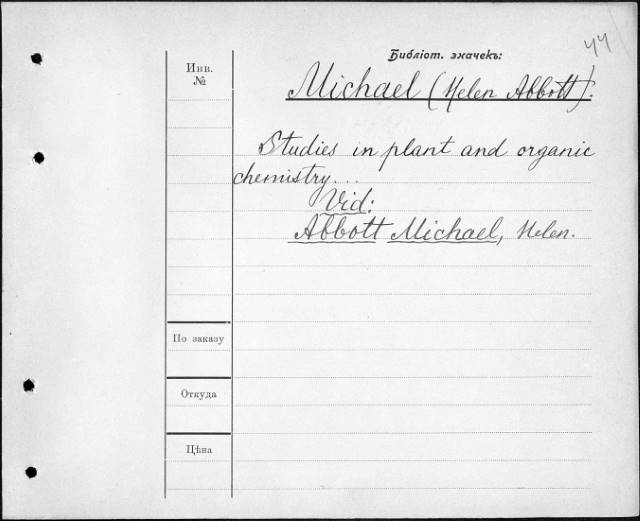 44
Библіот. значекъ:
Инв.
№
Michael (Helen Abbott).
Studies in plant and organic
chemistry...
Vid:
Abbott Michael, Helen.
По заказу
Откуда
Цѣна